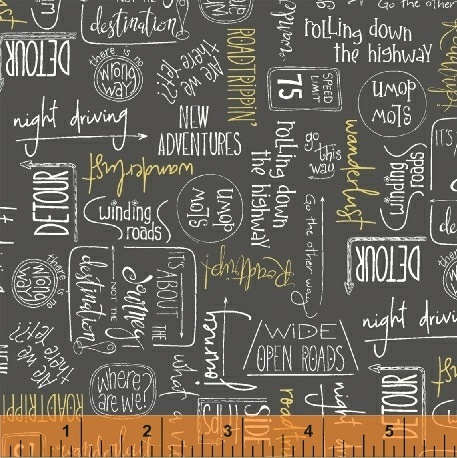 destination!
DETOUR
there is no
wrong
way
Are we
there yet??
ROADTRIPPIN'
wanderlust
rolling down
the highway
Go the other
SPEED
LIMIT
75
slow
down
night driving
NEW
ADVENTURES
rolling down
the highway
go
this
way
wanderlust
winding
roads
IT'S
DETOUR
wanderlust
winding
roads
slow
down
Go the other way
DETOUR
there is no
wrong
way
IT'S ABOUT THE
Journey
NOT THE
destination!
Roadtrip!
night drivi
Are we
there yet??
journey
WIDE
OPEN ROADS
where?
are we?
what a
ROADTRIPPIN
night
DETOUR
SIDE
1 2 3 4 5